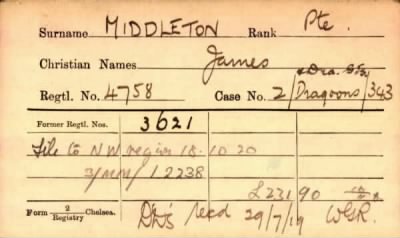 Surname MIDDLETON Rank Pte.
Christian Names James
& Dra. Gds
Regtl. No. 4758 Case No. 2/Dragoons/343
Former Regtl. Nos. 3621
File to N W region 18.10.20
3/MM/12238
£231 90
Form 2 Registry Chelsea. Dk's recd 29/7/19 WGR.